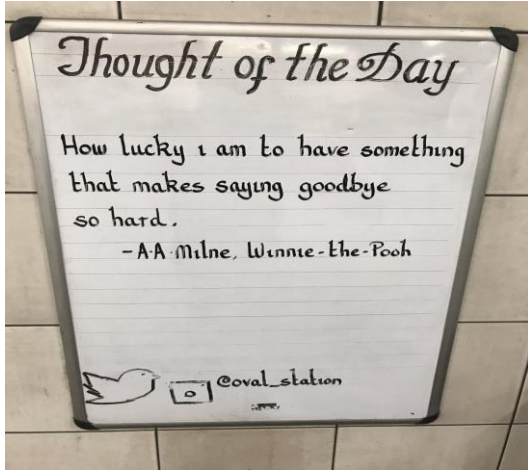 Thought of the Day
How lucky ı am to have somethıng
that makes sayıng goodbye
so hard.
-A·A·Mılne, Wınnıe-the-Pooh
@oval_statıon